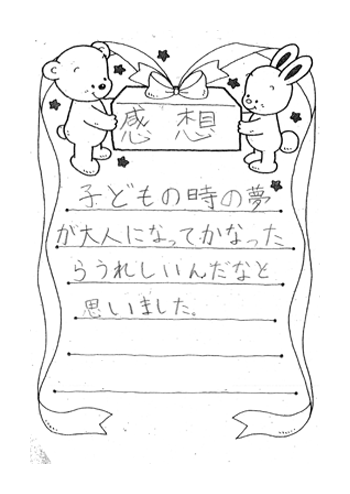 感想
子どもの時の夢
が大人になってかなった
らうれしいんだなと
思いました。